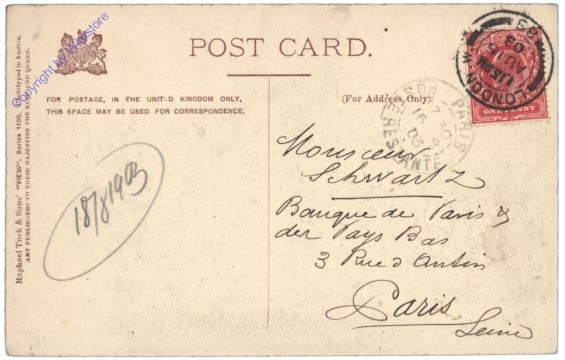 POST CARD.
FOR POSTAGE, IN THE UNITED KINGDOM ONLY,
THIS SPACE MAY BE USED FOR CORRESPONDENCE.
(For Address Only).
Raphael Tuck & Sons' "VIEW". Series 1139. Chromotyped in Austria.
ART PUBLISHERS TO THEIR MAJESTIES THE KING AND QUEEN.
Copyright by Warstore
18/8/1903
LONDON
ONE PENNY
PARIS
POSTE RESTANTE
Monsieur
Schwartz
Banque de Paris &
der Pays Bas
3 Rue d'Antin
Paris
Seine